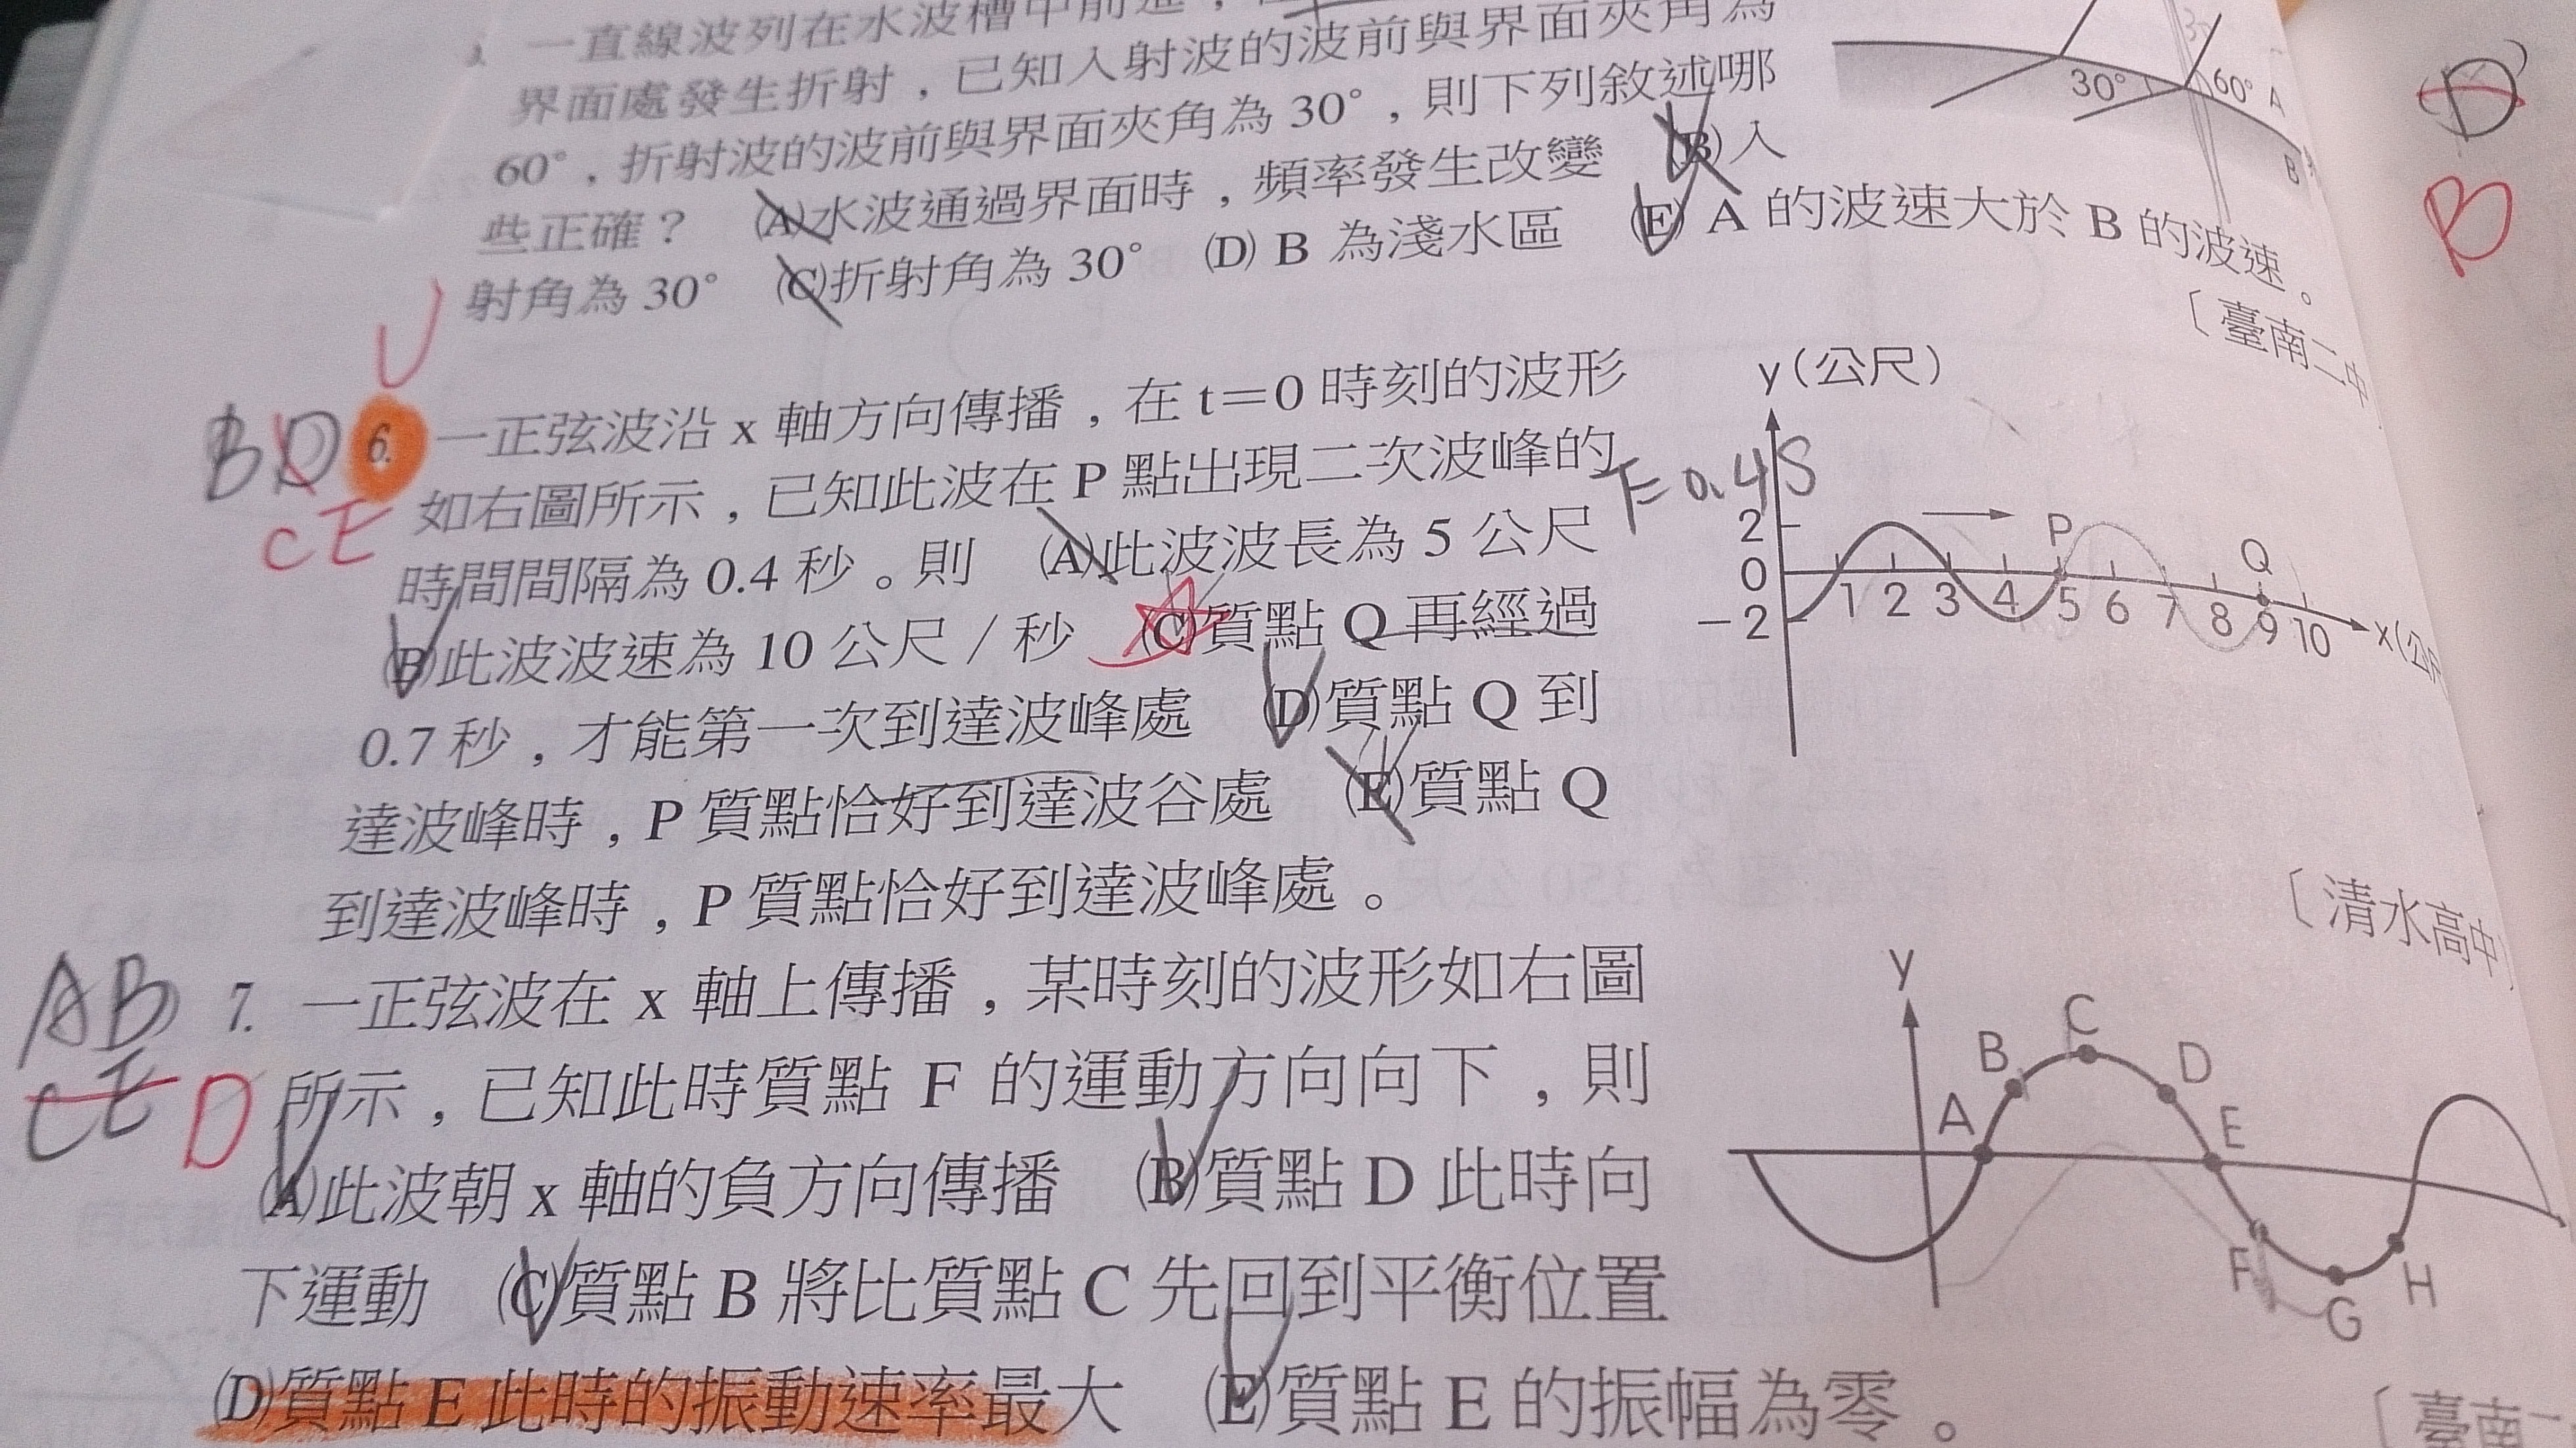 一直線波列在水波槽中前進，
界面處發生折射，已知入射波的波前與界面夾角為
60°，折射波的波前與界面夾角為 30°，則下列敘述哪
些正確？ (A)水波通過界面時，頻率發生改變 (B)入
射角為 30° (C)折射角為 30° (D) B 為淺水區 (E) A 的波速大於 B 的波速。
〔臺南二中
30° 60° A
B
D
B
BD
CE
6. 一正弦波沿 x 軸方向傳播，在 t=0 時刻的波形
如右圖所示，已知此波在 P 點出現二次波峰的
時間間隔為 0.4 秒。則 (A)此波波長為 5 公尺
(B)此波波速為 10 公尺／秒 (C)質點 Q 再經過
0.7 秒，才能第一次到達波峰處 (D)質點 Q 到
達波峰時，P 質點恰好到達波谷處 (E)質點 Q
到達波峰時，P 質點恰好到達波峰處。
T=0.4S
y(公尺)
2
0
-2
P
Q
1 2 3 4 5 6 7 8 9 10
x(公尺
〔清水高中〕
AB
CE D
7. 一正弦波在 x 軸上傳播，某時刻的波形如右圖
所示，已知此時質點 F 的運動方向向下，則
(A)此波朝 x 軸的負方向傳播 (B)質點 D 此時向
下運動 (C)質點 B 將比質點 C 先回到平衡位置
(D)質點 E 此時的振動速率最大 (E)質點 E 的振幅為零。
y
A B C D E F G H
〔臺南二